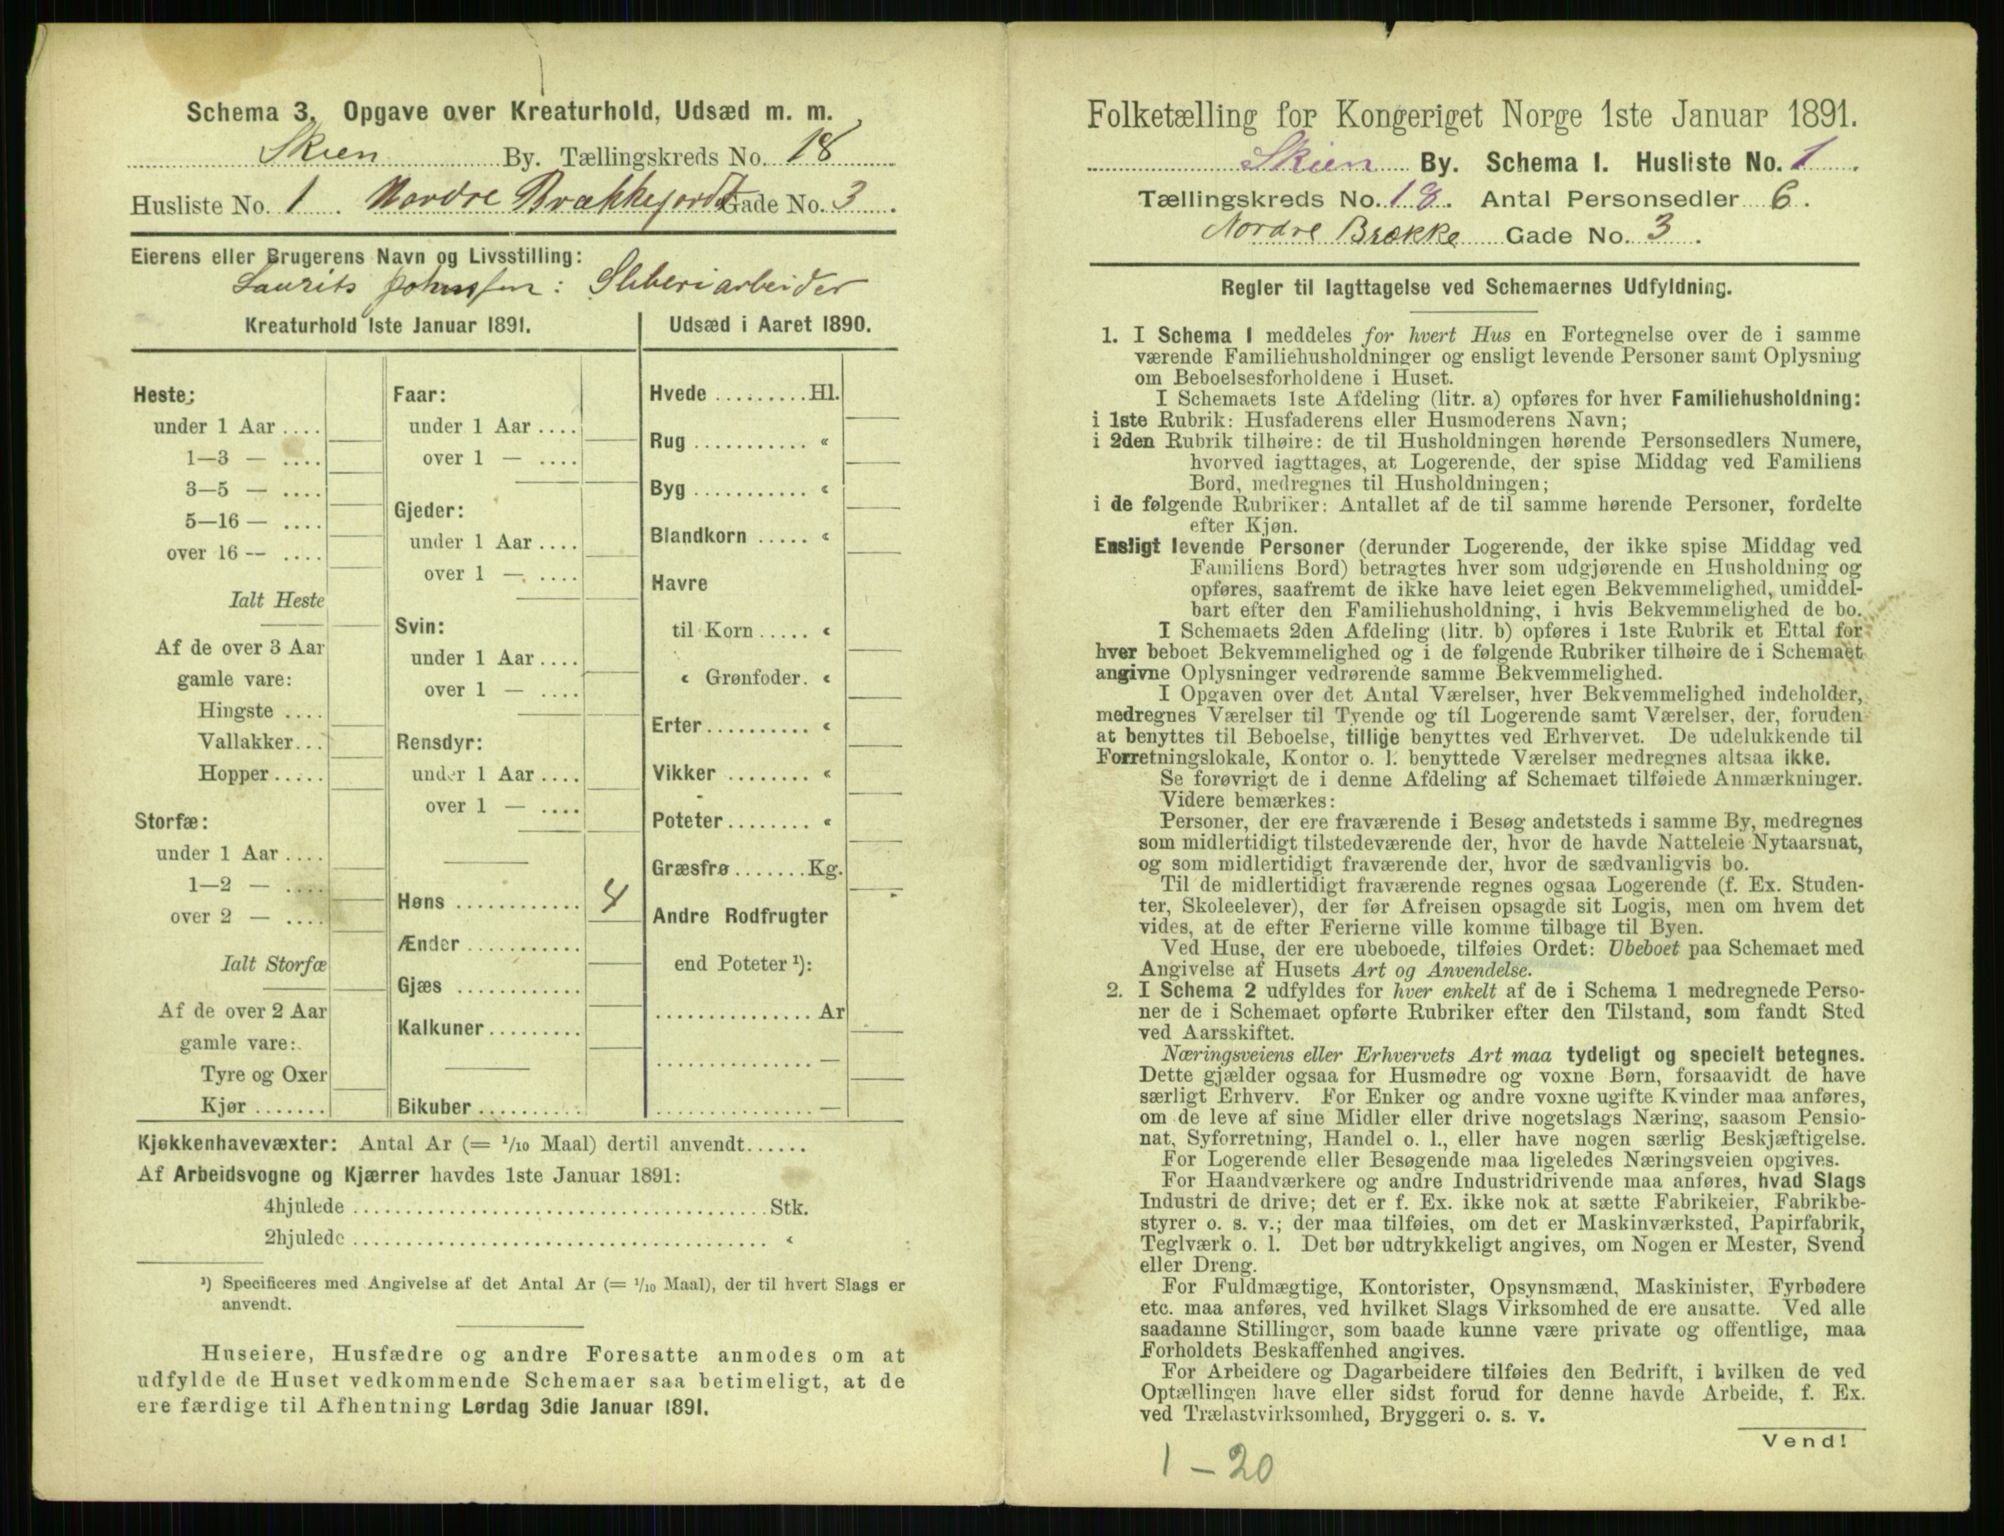 Schema 3. Opgave over Kreaturhold, Udsæd m. m.
Skien By. Tællingskreds No. 18
Husliste No. 1 Nordre Brækkejordet Gade No. 3.
Eierens eller Brugerens Navn og Livsstilling:
Laurits Johnssen: Sliberiarbeider
Kreaturhold 1ste Januar 1891.
Heste:
under 1 Aar ....
1—3 — ....
3—5 — ....
5—16 — ....
over 16 — ....
Ialt Heste
Af de over 3 Aar
gamle vare:
Hingste ....
Vallakker...
Hopper.....
Storfæ:
under 1 Aar ....
1—2 — ....
over 2 — ....
Ialt Storfæ
Af de over 2 Aar
gamle vare:
Tyre og Oxer
Kjør.......
Faar:
under 1 Aar ....
over 1 — ....
Gjeder:
under 1 Aar ....
over 1 — ....
Svin:
under 1 Aar ....
over 1 — ....
Rensdyr:
under 1 Aar ....
over 1 — ....
Høns ............ 4
Ænder ...........
Gjæs ............
Kalkuner.........
Bikuber..........
Udsæd i Aaret 1890.
Hvede .........Hl.
Rug ........... «
Byg ........... «
Blandkorn ..... «
Havre
til Korn ..... «
« Grønfoder. «
Erter.......... «
Vikker ........ «
Poteter........ «
Græsfrø.......Kg.
Andre Rodfrugter
end Poteter ¹):
............... Ar
............... —
............... —
Kjøkkenhavevæxter: Antal Ar (= 1/10 Maal) dertil anvendt......
Af Arbeidsvogne og Kjærrer havdes 1ste Januar 1891:
4hjulede ..................................... Stk.
2hjulede ..................................... «
¹) Specificeres med Angivelse af det Antal Ar (= 1/10 Maal), der til hvert Slags er
anvendt.
Huseiere, Husfædre og andre Foresatte anmodes om at
udfylde de Huset vedkommende Schemaer saa betimeligt, at de
ere færdige til Afhentning Lørdag 3die Januar 1891.
Folketælling for Kongeriget Norge 1ste Januar 1891.
Skien By. Schema I. Husliste No. 1.
Tællingskreds No. 18. Antal Personsedler 6.
Nordre Brække Gade No. 3.
Regler til Iagttagelse ved Schemaernes Udfyldning.
1. I Schema 1 meddeles for hvert Hus en Fortegnelse over de i samme
værende Familiehusholdninger og ensligt levende Personer samt Oplysning
om Beboelsesforholdene i Huset.
I Schemaets 1ste Afdeling (litr. a) opføres for hver Familiehusholdning:
i 1ste Rubrik: Husfaderens eller Husmoderens Navn;
i 2den Rubrik tilhøire: de til Husholdningen hørende Personsedlers Numere,
hvorved iagttages, at Logerende, der spise Middag ved Familiens
Bord, medregnes til Husholdningen;
i de følgende Rubriker: Antallet af de til samme hørende Personer, fordelte
efter Kjøn.
Ensligt levende Personer (derunder Logerende, der ikke spise Middag ved
Familiens Bord) betragtes hver som udgjørende en Husholdning og
opføres, saafremt de ikke have leiet egen Bekvemmelighed, umiddel-
bart efter den Familiehusholdning, i hvis Bekvemmelighed de bo.
I Schemaets 2den Afdeling (litr. b) opføres i 1ste Rubrik et Ettal for
hver beboet Bekvemmelighed og i de følgende Rubriker tilhøire de i Schemaet
angivne Oplysninger vedrørende samme Bekvemmelighed.
I Opgaven over det Antal Værelser, hver Bekvemmelighed indeholder,
medregnes Værelser til Tyende og til Logerende samt Værelser, der, foruden
at benyttes til Beboelse, tillige benyttes ved Erhvervet. De udelukkende til
Forretningslokale, Kontor o. l. benyttede Værelser medregnes altsaa ikke.
Se forøvrigt de i denne Afdeling af Schemaet tilføiede Anmærkninger.
Videre bemærkes:
Personer, der ere fraværende i Besøg andetsteds i samme By, medregnes
som midlertidigt tilstedeværende der, hvor de havde Natteleie Nytaarsnat,
og som midlertidigt fraværende der, hvor de sædvanligvis bo.
Til de midlertidigt fraværende regnes ogsaa Logerende (f. Ex. Studen-
ter, Skoleelever), der før Afreisen opsagde sit Logis, men om hvem det
vides, at de efter Ferierne ville komme tilbage til Byen.
Ved Huse, der ere ubeboede, tilføies Ordet: Ubeboet paa Schemaet med
Angivelse af Husets Art og Anvendelse.
2. I Schema 2 udfyldes for hver enkelt af de i Schema 1 medregnede Perso-
ner de i Schemaet opførte Rubriker efter den Tilstand, som fandt Sted
ved Aarsskiftet.
Næringsveiens eller Erhvervets Art maa tydeligt og specielt betegnes.
Dette gjælder ogsaa for Husmødre og voxne Børn, forsaavidt de have
særligt Erhverv. For Enker og andre voxne ugifte Kvinder maa anføres,
om de leve af sine Midler eller drive nogetslags Næring, saasom Pensio-
nat, Syforretning, Handel o. l., eller have nogen særlig Beskjæftigelse.
For Logerende eller Besøgende maa ligeledes Næringsveien opgives.
For Haandværkere og andre Industridrivende maa anføres, hvad Slags
Industri de drive; det er f. Ex. ikke nok at sætte Fabrikeier, Fabrikbe-
styrer o. s. v.; der maa tilføies, om det er Maskinværksted, Papirfabrik,
Teglværk o. l. Det bør udtrykkeligt angives, om Nogen er Mester, Svend
eller Dreng.
For Fuldmægtige, Kontorister, Opsynsmænd, Maskinister, Fyrbødere
etc. maa anføres, ved hvilket Slags Virksomhed de ere ansatte. Ved alle
saadanne Stillinger, som baade kunne være private og offentlige, maa
Forholdets Beskaffenhed angives.
For Arbeidere og Dagarbeidere tilføies den Bedrift, i hvilken de ved
Optællingen have eller sidst forud for denne havde Arbeide, f. Ex.
ved Trælastvirksomhed, Bryggeri o. s. v.
Vend!
1 – 20